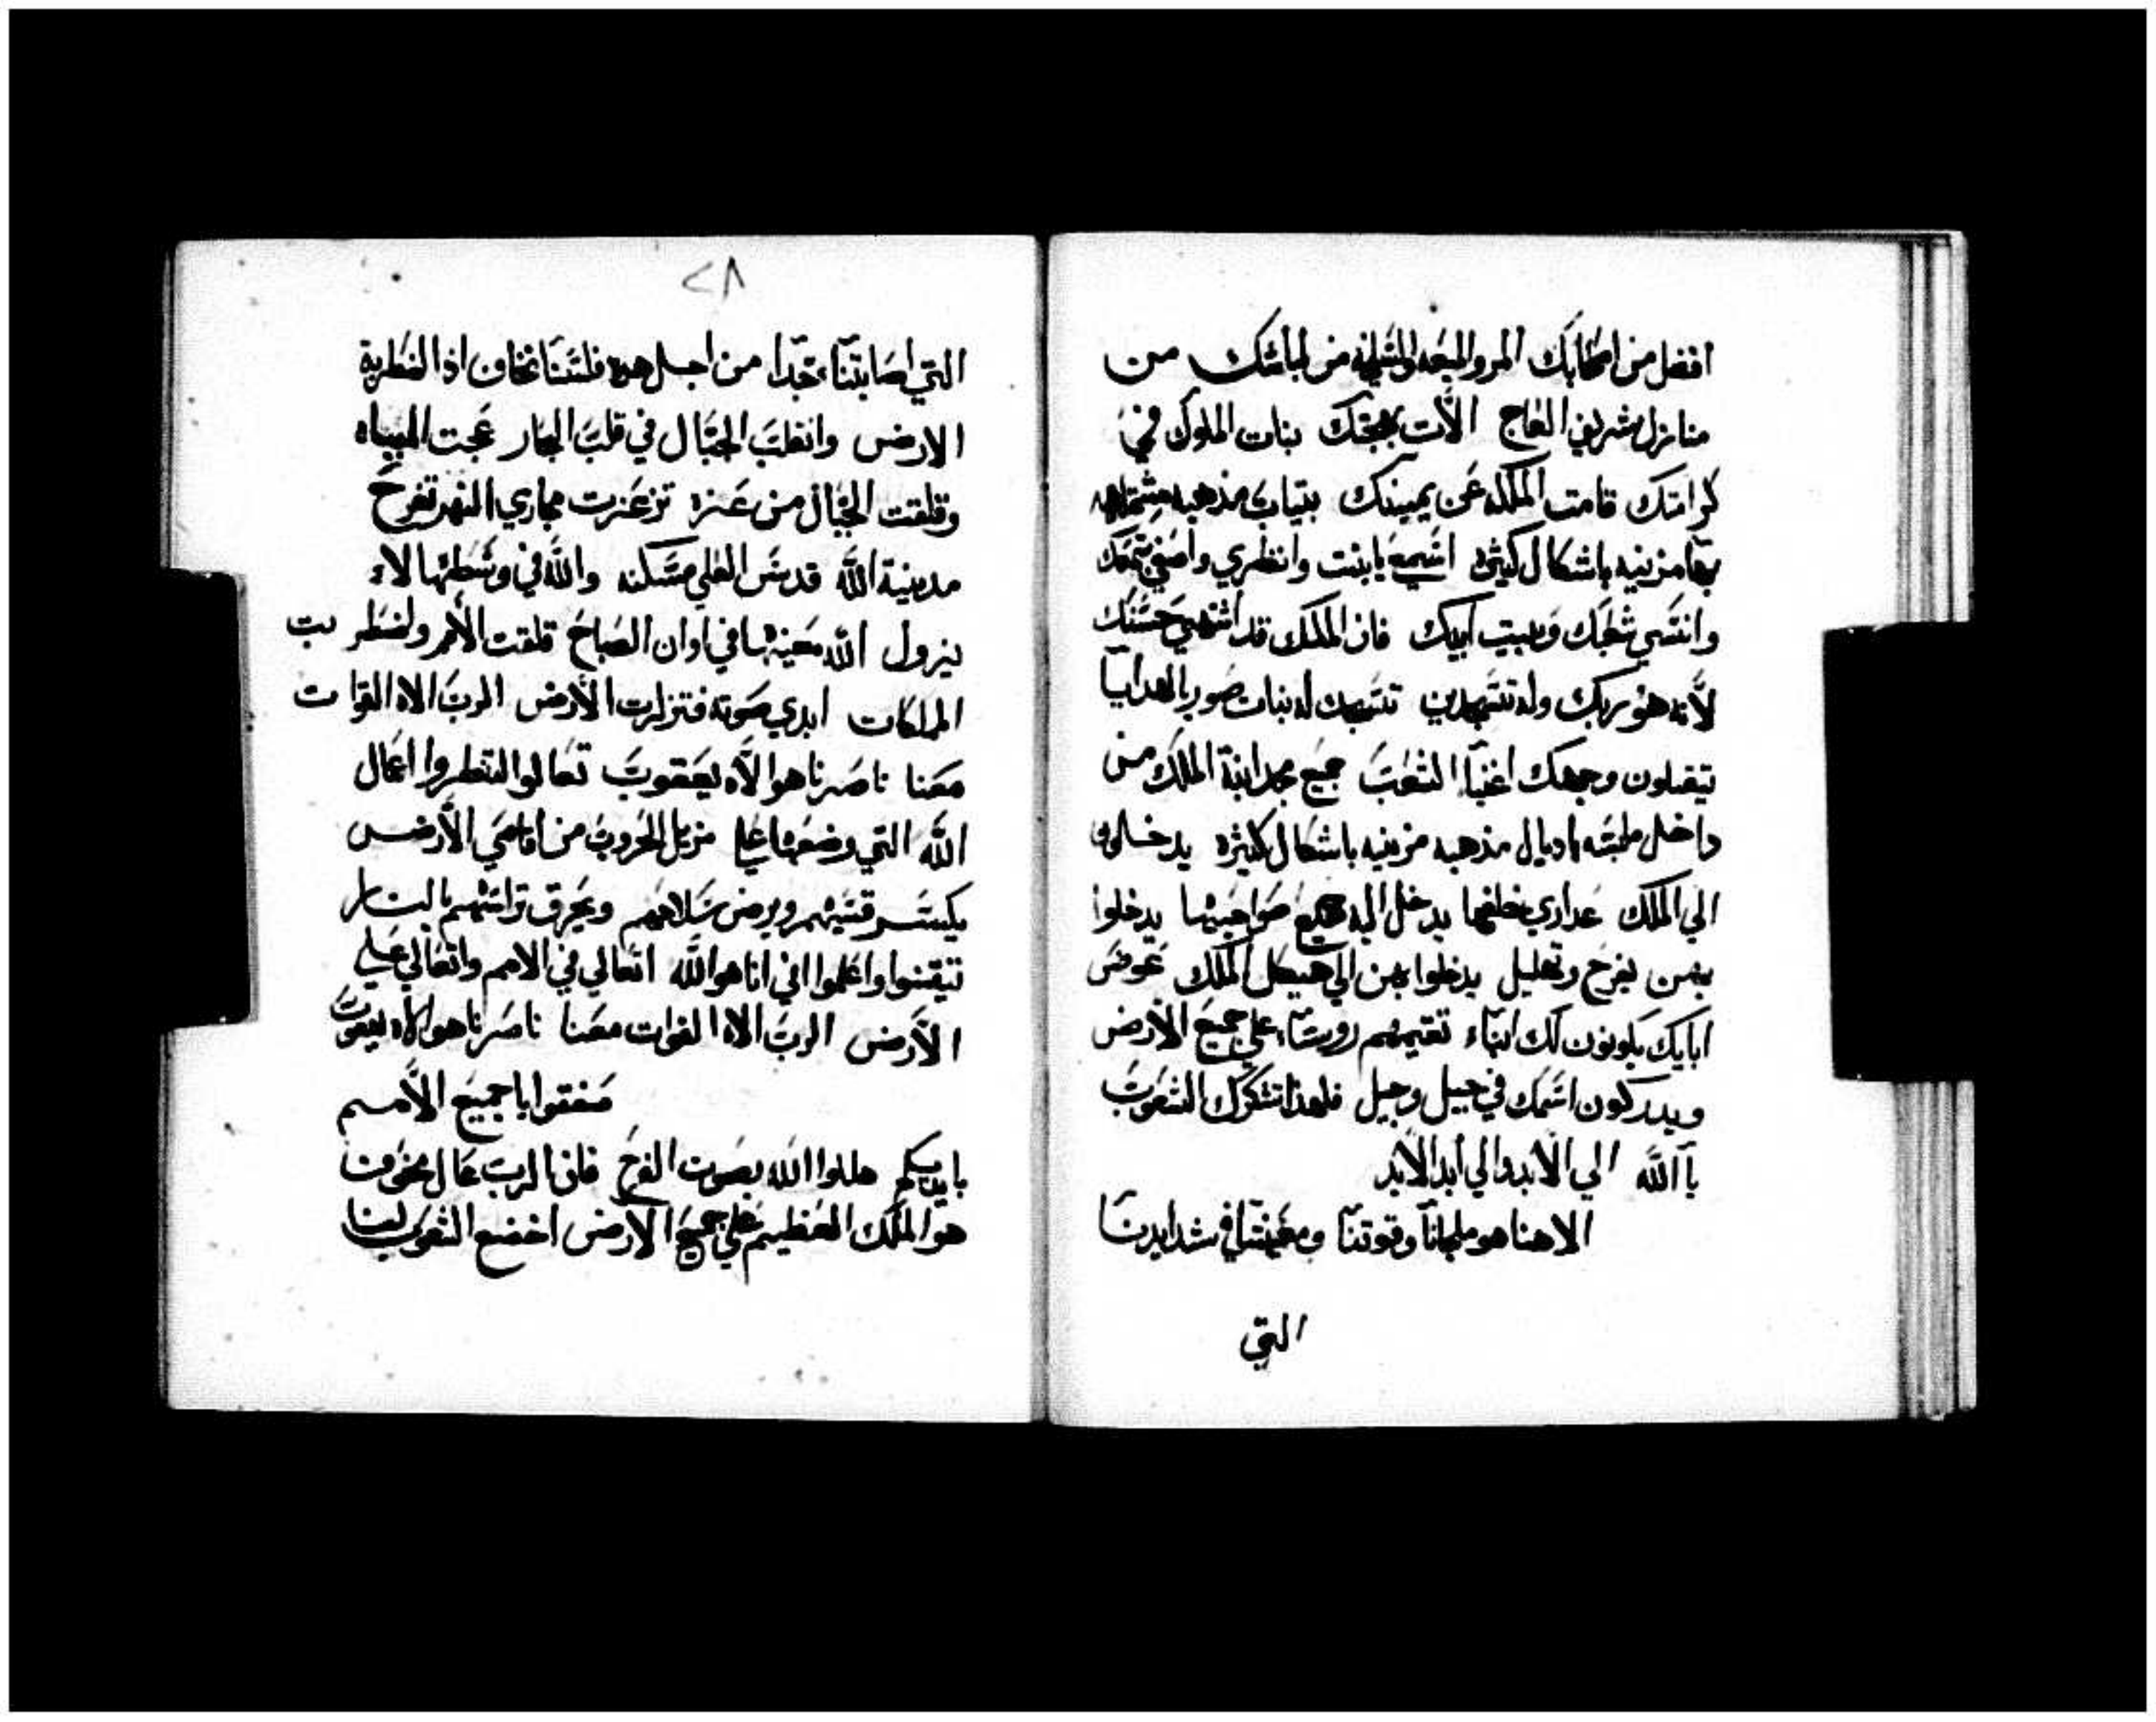 افضل من اصحابك المر والميعه والسليخه من لباسك من
منازل شريفي العاج الآت بهجتك بنات الملوك في
كرامتك قامت الملكه عن يمينك بتياب مذهبه مشتمله
بها مزينه باشكال كثيره اسمع يابنت وانظري واصغي بسمعك
وانسي شعبك وبيت ابيك فان الملك قد اشتهي حسنك
لأنه هو ربك وله تسجدين تسجد له بنات صور بالهدايا
تيقبلون وجهك اغنيآ الشعب جميع مجد ابنة الملك من
داخل ملبسه باديال مذهبه مزينه باشكال كثيره يدخلون
الي الملك عداري خلفها يدخل اليه جميع صواحبيها يدخلوا
بهن بفرح وتهليل يدخلوا بهن الي هيكل الملك عوض
ابايك يكونون لك ابناء تقيمهم روسآء علي جميع الأرض
ويدركون اسمك في جيل وجيل فلهذا تشكرك الشعوب
ياآلله الي الأبد والي أبد الأبد
الاهنا هو ملجانا وقوتنا ومعيننا في شدايدنا
التي
٢٨
التي اصابتنا جدا من اجل هده فلسنا نخاف اذا اضطربة
الارض وانقلب الجبال في قلب البحار عجت المياه
وقلقت الجبال من عزه تزعزت مجاري النهر تفرح
مدينة الله قدس العلي مسكنه والله في وسطها لاء
يزول الله معينها في اوان الصباح قلقت الأمم واضطربت
الملكات ابدي صوته فتزلزت الأرض الرب الاه القوات
معنا ناصرنا هو الآه يعقوب تعالوا انظروا اعمال
الله التي وضعها علي مزيل الحروب من اقاصي الأرض
يكسر قسيهم ويرض سلاحهم ويحرق تراسهم بالنار
تيقنوا واعلموا اني انا هو الله اتعالي في الامم واتعالي علي
الأرض الرب الاه القوات معنا ناصرنا هو الاه يعقوب
صفقوا ياجميع الأمم
باديكم هللوا الله بصوت الفرح فان الرب عال مخوف
هو الملك العظيم علي جميع الارض اخضع الشعوب لنا